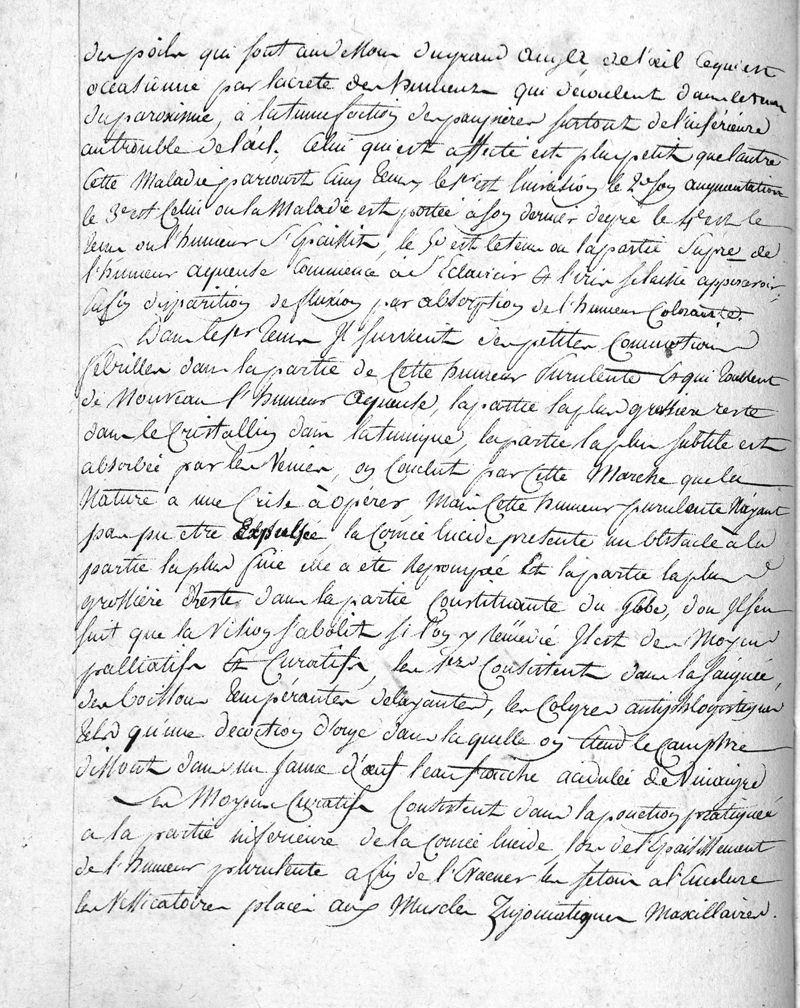 des poils qui sont au dessous du grand angle de l'œil ce qui est
occasionné par lacreté des humeurs qui découlent dans le tems
du paroxisme, à la tumefaction des paupieres surtout de l'inférieure
au trouble de l'œil, Celui qui est affecté est plus petit que l'autre
Cette Maladie parcourt Cinq tems le 1er est l'invasion le 2e son augmentation
le 3e est Celui ou la Maladie est portée à son dernier degré le 4e est le
tems ou l'humeur s'Epaissit, le 5e est le tems ou la partie Supre de
l'humeur aqueuse Commence à s'Eclaircir et l'iris se laisse appercevoir,
Enfin disparition de fluxion par absorption de l'humeur Colorante.
Dans le 1er tems Il survient des petites Commotions
fébrilles dans la partie de Cette humeur Purulente et qui
de Nouveau l'humeur aqueuse, la partie la plus grossiere reste
dans le Cristallin dans la tunique, la partie la plus subtile est
absorbée par les Veines, on Conclut par Cette Marche que la
Nature a une Crise à opérer, Mais Cette humeur purulente N'ayant
pas pu etre Expulsée, la Cornée lucide presente un obstacle à la
partie la plus fine elle a ete repompée Et la partie la plus
grossière Reste dans la partie Constituante du Globe, d'ou Il s'en
suit que la Vision s'abolit si l'on y Remedie Il est des Moyens
palliatifs et Curatifs, les 1ers Consistent dans la Saignée,
des boissons tempérantes delayantes, les Colyres antiphlogistiques
tels qu'une decoction d'orge dans laquelle on Etend le Camphre
dissout dans un jaune d'œuf l'eau franche acidulée de Vinaigre
Les Moyens Curatifs Consistent dans la ponction pratiquée
a la partie inferieure de la Cornée lucide lors de l'Epaississement
de l'humeur purulente afin de l'Evacuer les setons a l'Encolure
les Vessicatoires placés aux Muscles Zijomatiques Maxillaires.